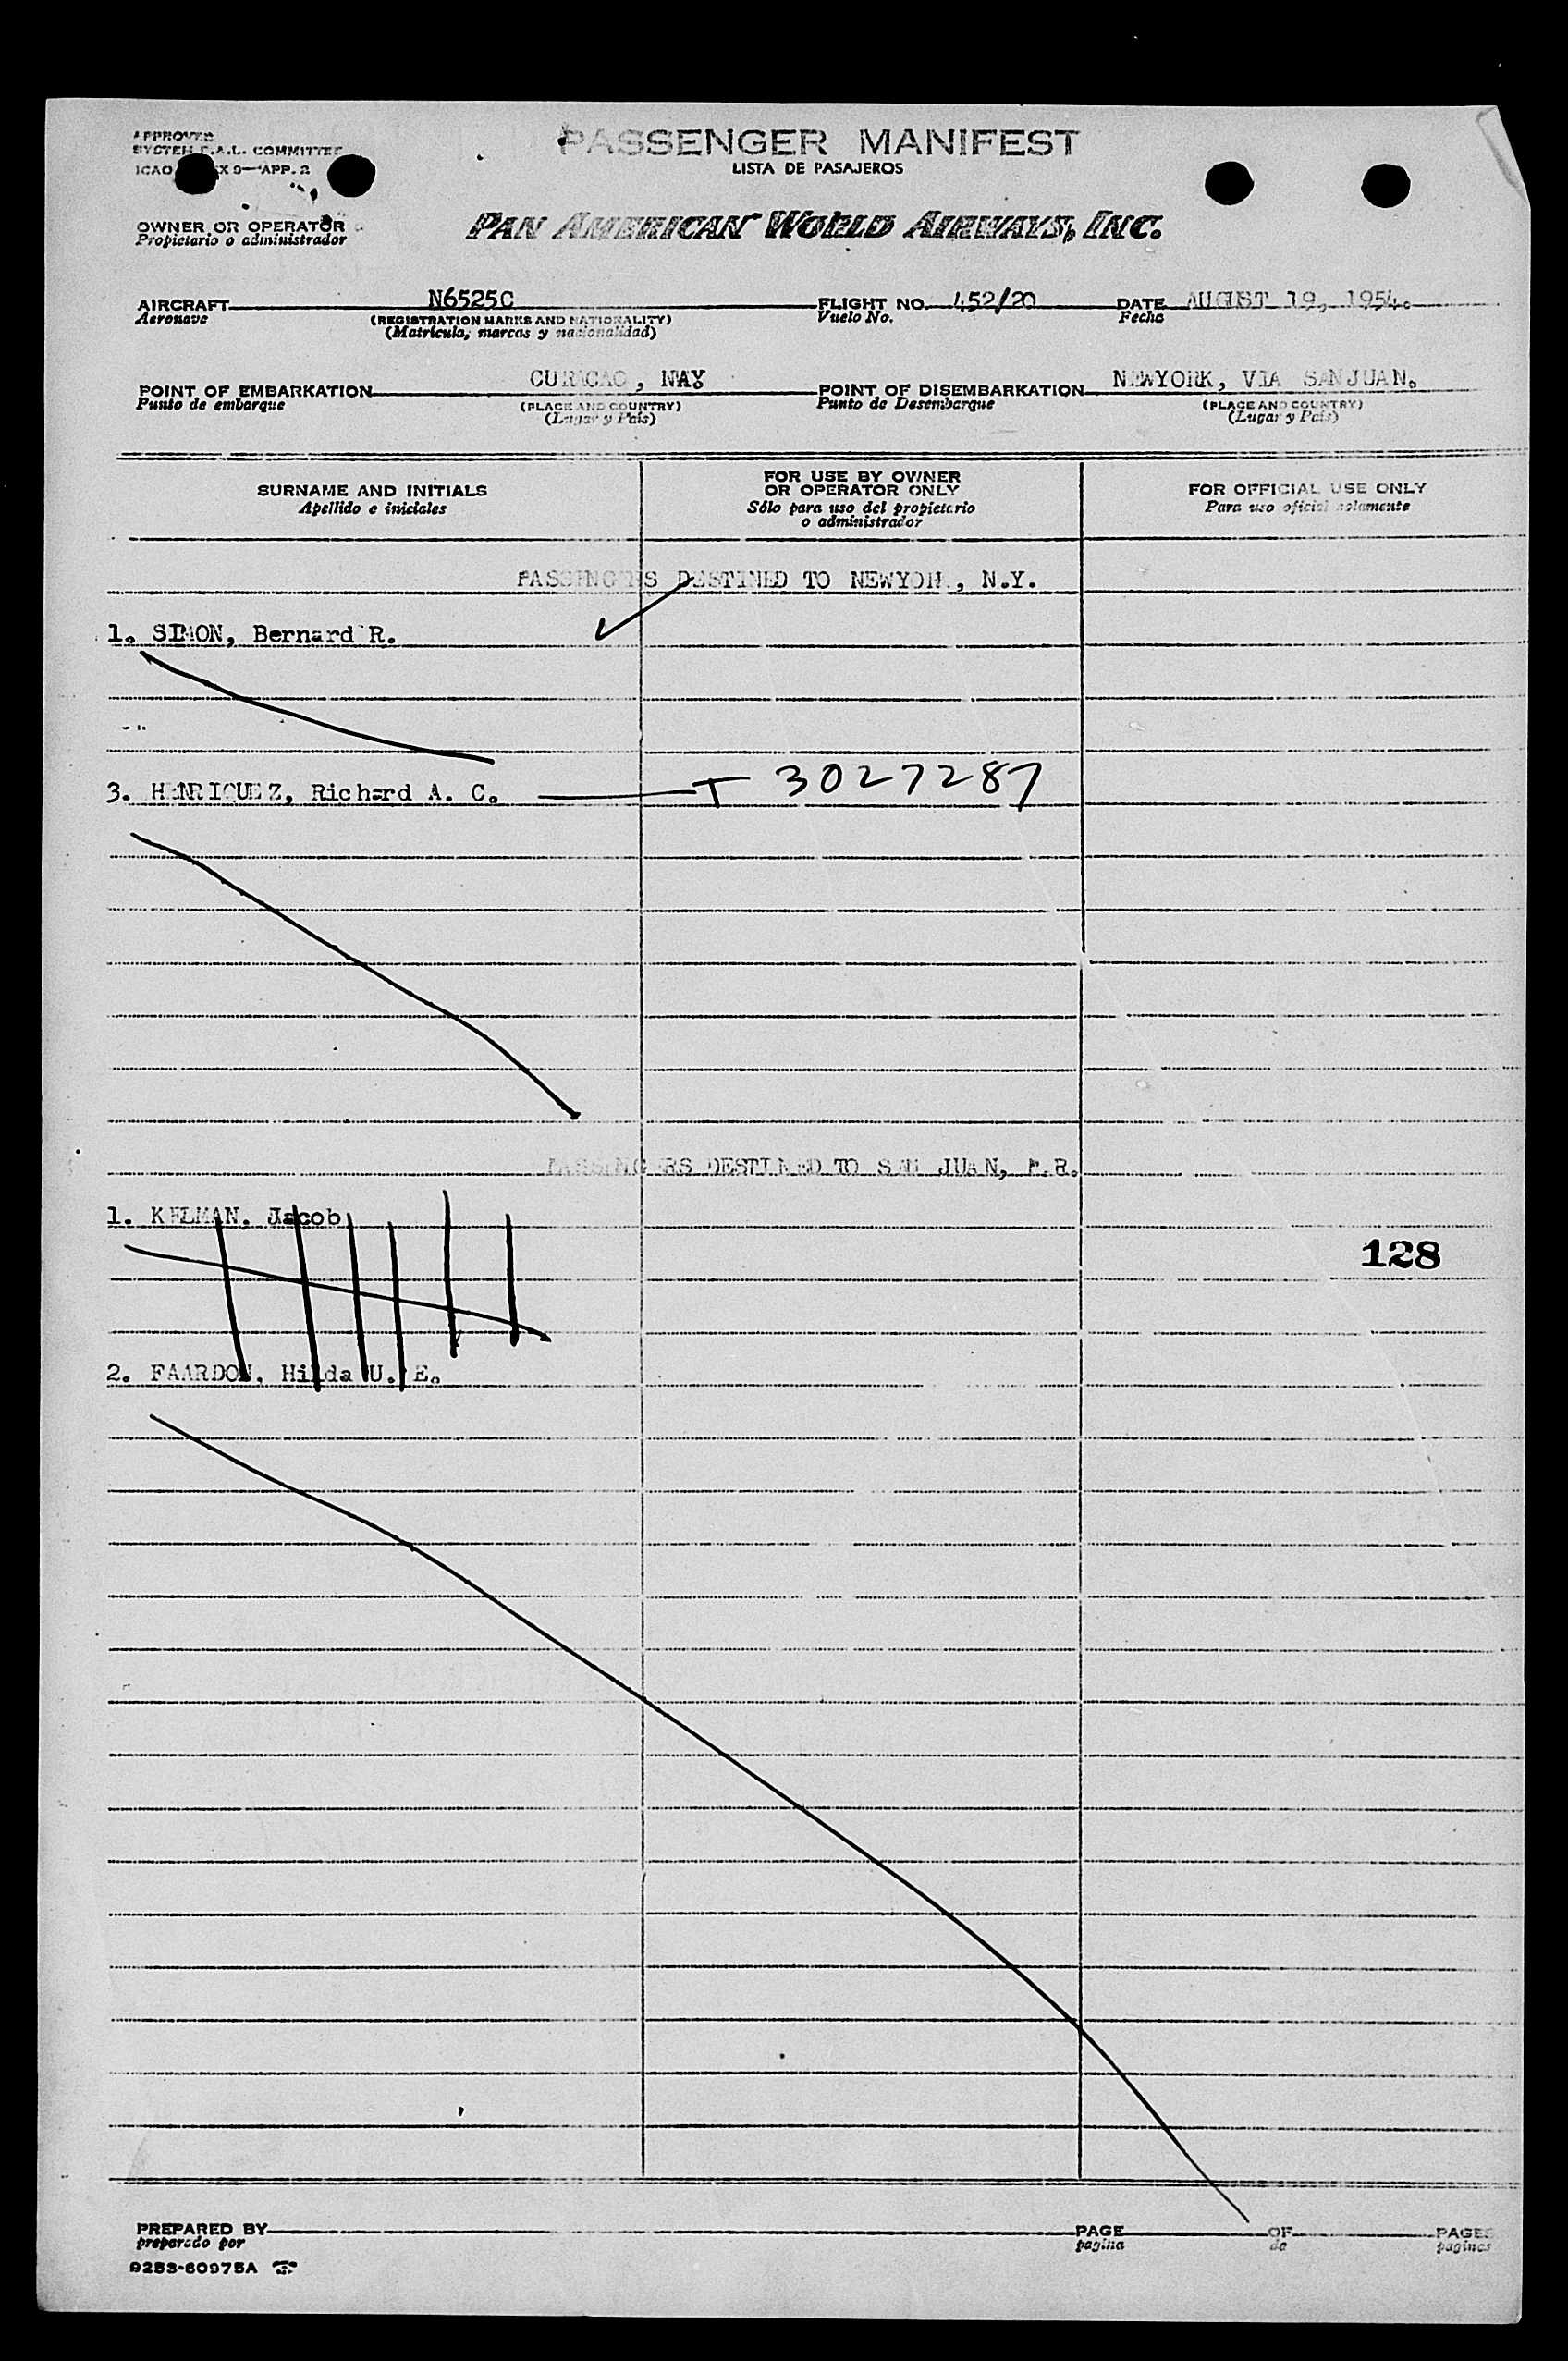 APPROVED
SYSTEM F.A.L. COMMITTEE
ICAO X 9—APP. 2
PASSENGER MANIFEST
LISTA DE PASAJEROS
OWNER OR OPERATOR
Propietario o administrador
PAN AMERICAN WORLD AIRWAYS, INC.
AIRCRAFT N6525C FLIGHT NO. 452/20 DATE AUGUST 19, 1954.
Aeronave (REGISTRATION MARKS AND NATIONALITY) Vuelo No. Fecha
(Matrícula, marcas y nacionalidad)
POINT OF EMBARKATION CURACAO, NAY POINT OF DISEMBARKATION NEWYORK, VIA SANJUAN.
Punto de embarque (PLACE AND COUNTRY) Punto de Desembarque (PLACE AND COUNTRY)
(Lugar y País) (Lugar y País)
SURNAME AND INITIALS
Apellido e iniciales
FOR USE BY OWNER
OR OPERATOR ONLY
Sólo para uso del propietario
o administrador
FOR OFFICIAL USE ONLY
Para uso oficial solamente
PASSENGERS DESTINED TO NEWYORK, N.Y.
1. SIMON, Bernard R.
3. HENRIQUEZ, Richard A. C. T 3027287
PASSENGERS DESTINED TO SAN JUAN, P.R.
1. KELMAN, Jacob
128
2. FAARDON, Hilda U. E.
PREPARED BY PAGE OF PAGES
preparado por pagina de paginas
9253-60975A